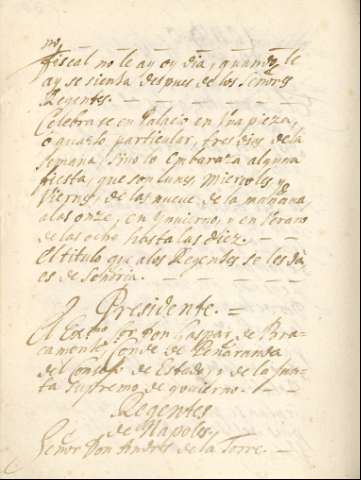 no,
fiscal no le ay oy dia, quando le
ay se sienta despues de los señores
Regentes.
Celebrase en Palacio en vna pieza,
o quarto particular, tres dias de la
semana, sino lo embaraza alguna
fiesta, que son lunes, Miercoles, y
Viernes, de las nueve de la mañana,
a las onze, en Ynuierno, y en Verano
de las ocho hasta las diez.
El titulo que a los Regentes se les da
es de Señoria.
Presidente.
El Exmo. sr. Don Gaspar de Bra-
camonte Conde de Peñaranda
del Consejo de Estado, y de la Jun-
ta suprema de gouierno.
Regentes
de Napoles,
Señor Don Andres de la Torre